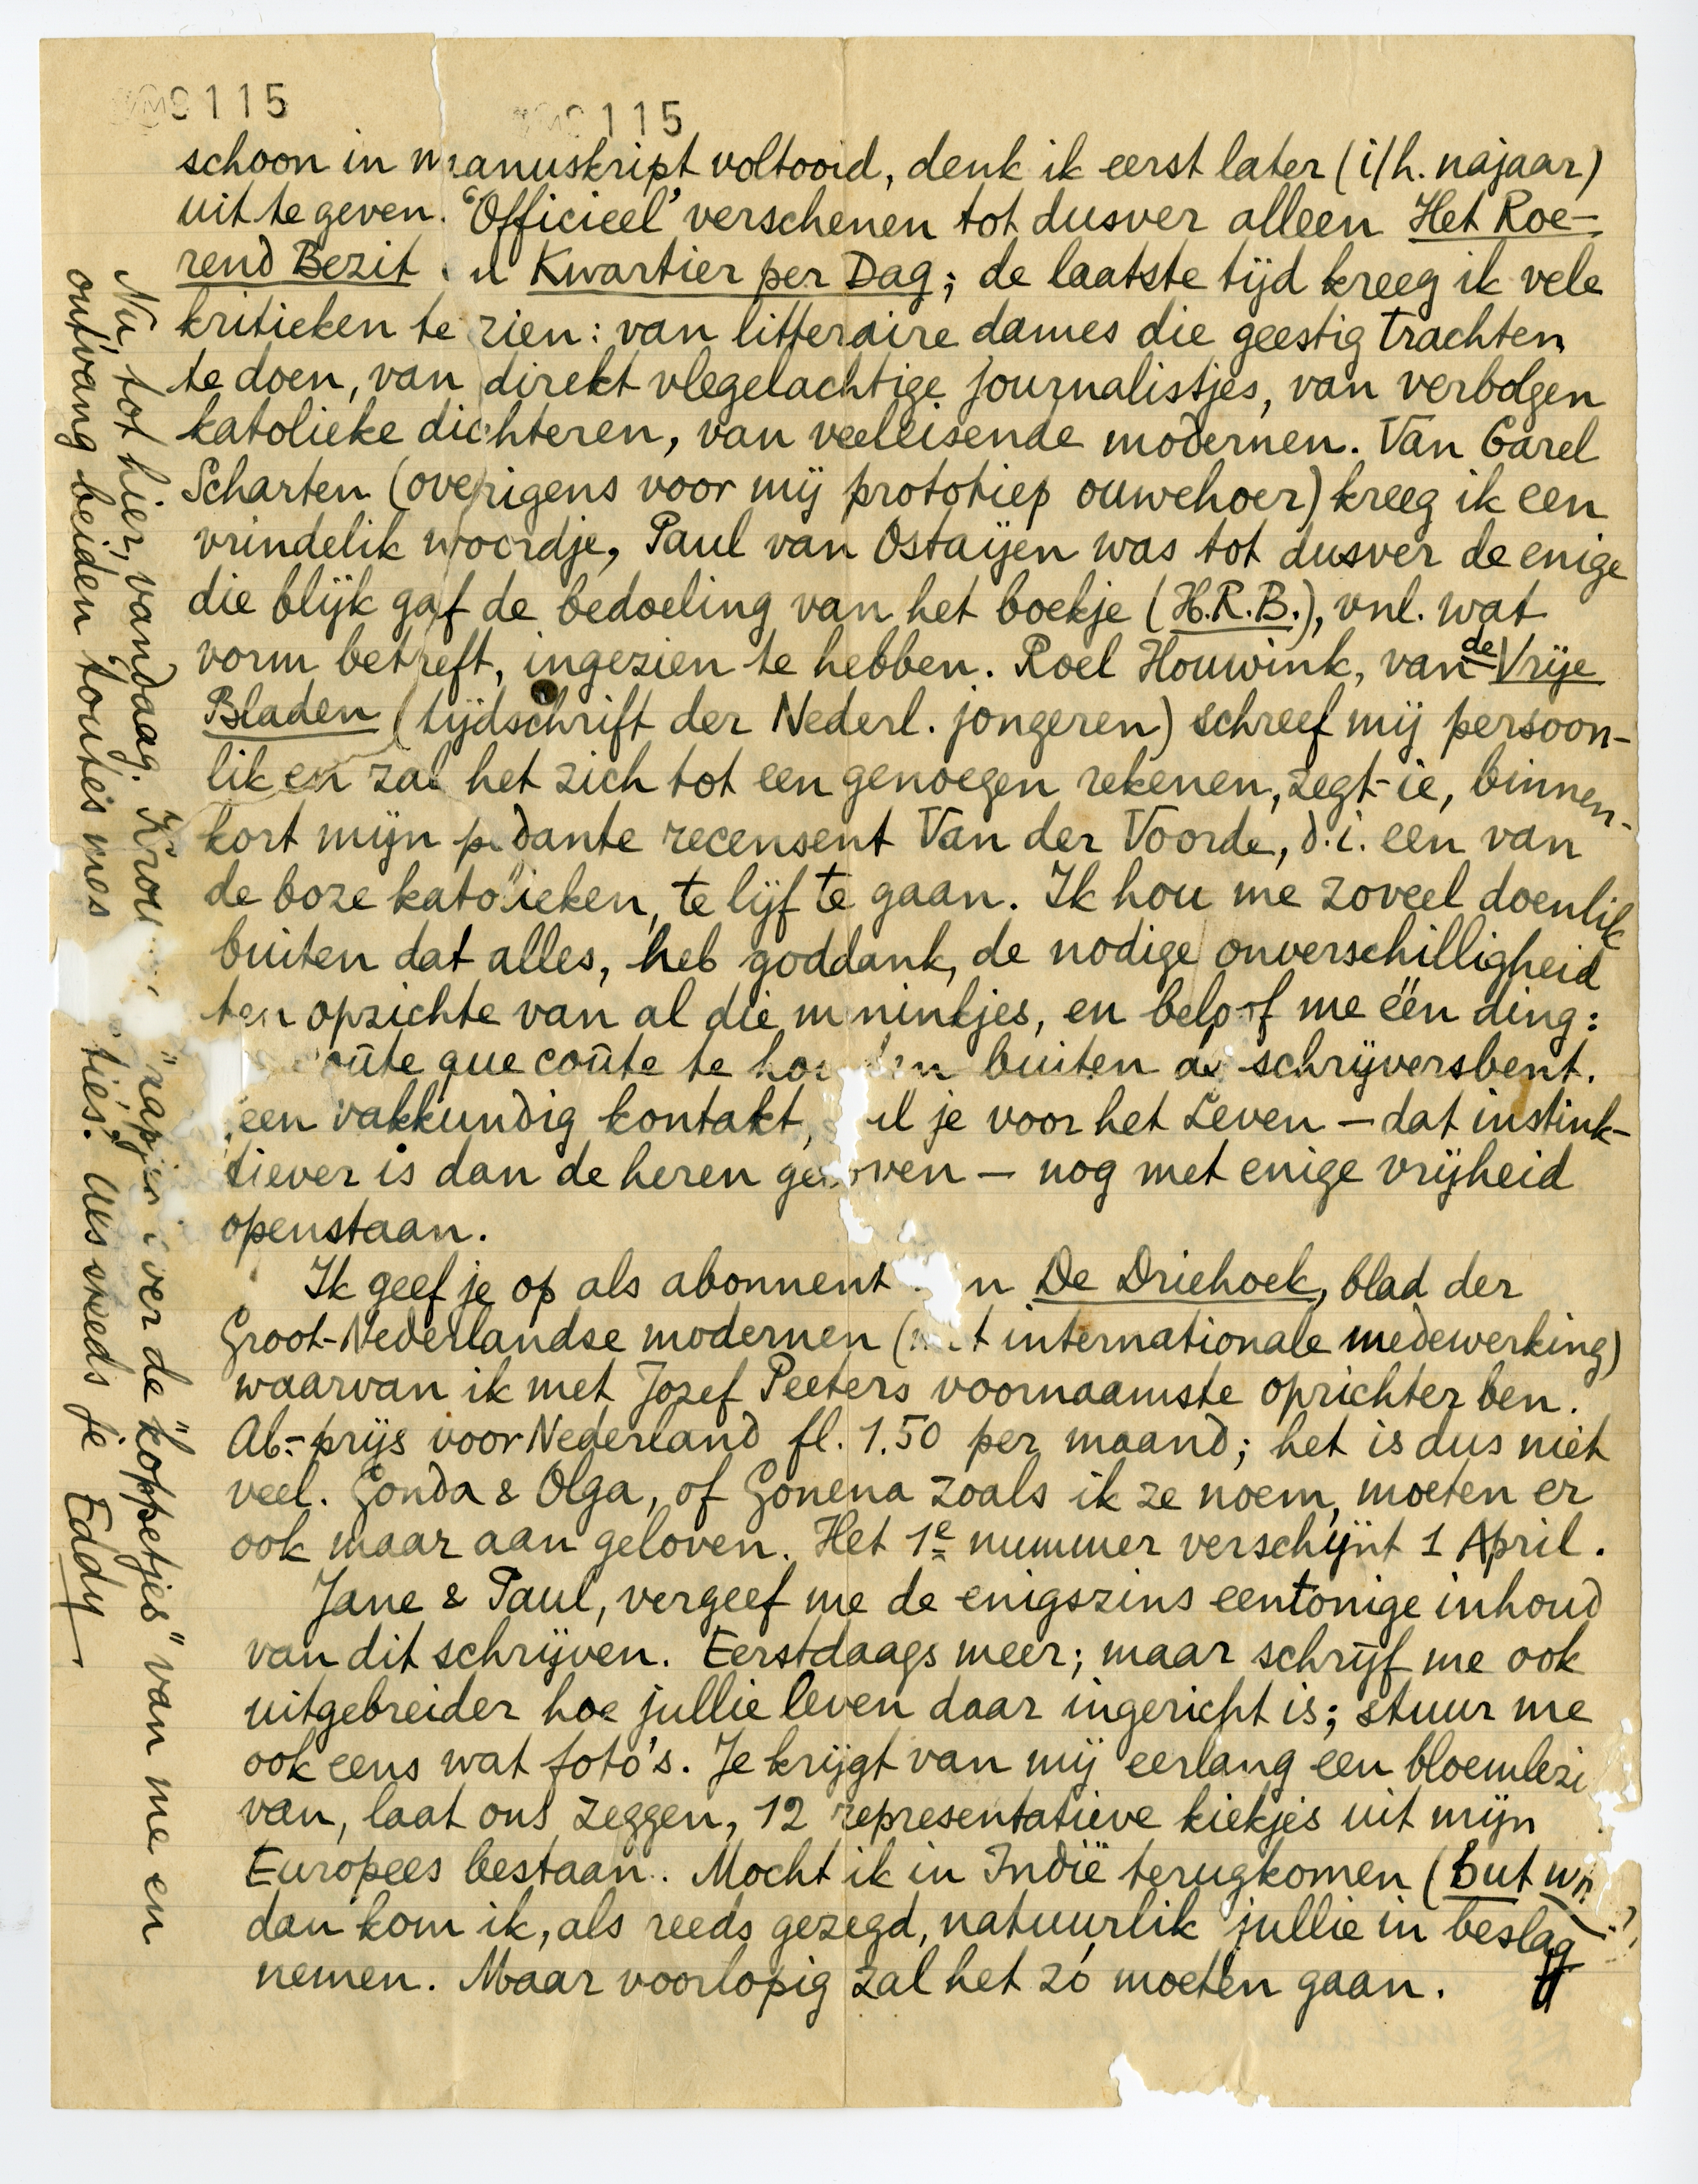 0115
0115
schoon in manuskript voltooid, denk ik eerst later (i/h. najaar)
uit te geven. 'Officieel' verschenen tot dusver alleen Het Roe-
rend Bezit Kwartier per Dag; de laatste tijd kreeg ik vele
kritieken te zien: van litteraire dames die geestig trachten
te doen, van direkt vlegelachtige journalistjes, van verbolgen
katolieke dichteren, van veeleisende modernen. Van Carel
Scharten (overigens voor mij prototiep ouwehoer) kreeg ik een
vrindelik woordje, Paul van Ostaijen was tot dusver de enige
die blijk gaf de bedoeling van het boekje (H.R.B.), vnl. wat
vorm betreft, ingezien te hebben. Roel Houwink, van de Vrije
Bladen (tijdschrift der Nederl. jongeren) schreef mij persoon-
lik en zal het zich tot een genoegen rekenen, zegt-ie, binnen-
kort mijn pedante recensent Van der Voorde, d.i. een van
de boze katolieken, te lijf te gaan. Ik hou me zoveel doenlik
buiten dat alles, heb goddank, de nodige onverschilligheid
ten opzichte van al die menintjes, en beloof me één ding:
coûte que coûte te houden buiten de schrijversbent.
een vakkundig kontakt, je voor het Leven – dat instink-
tiever is dan de heren geloven – nog met enige vrijheid
openstaan.
Ik geef je op als abonnent De Driehoek, blad der
Groot-Nederlandse modernen (met internationale medewerking)
waarvan ik met Jozef Peeters voornaamste oprichter ben.
Ab:-prijs voor Nederland fl. 1.50 per maand; het is dus niet
veel. Gonda & Olga, of Gonena zoals ik ze noem, moeten er
ook maar aan geloven. Het 1e nummer verschijnt 1 April.
Jane & Paul, vergeef me de enigszins eentonige inhoud
van dit schrijven. Eerstdaags meer; maar schrijf me ook
uitgebreider hoe jullie leven daar ingericht is; stuur me
ook eens wat foto's. Je krijgt van mij eerlang een bloemlezi
van, laat ons zeggen, 12 representatieve kiekjes uit mijn
Europees bestaan. Mocht ik in Indië terugkomen (but
dan kom ik, als reeds gezegd, natuurlik jullie in beslag
nemen. Maar voorlopig zal het zó moeten gaan.
Nu, tot hier, vandaag. "rapjes" over de "koppetjes" van me en
ontvang beiden toutes mes tiés. Als steeds je Eddy